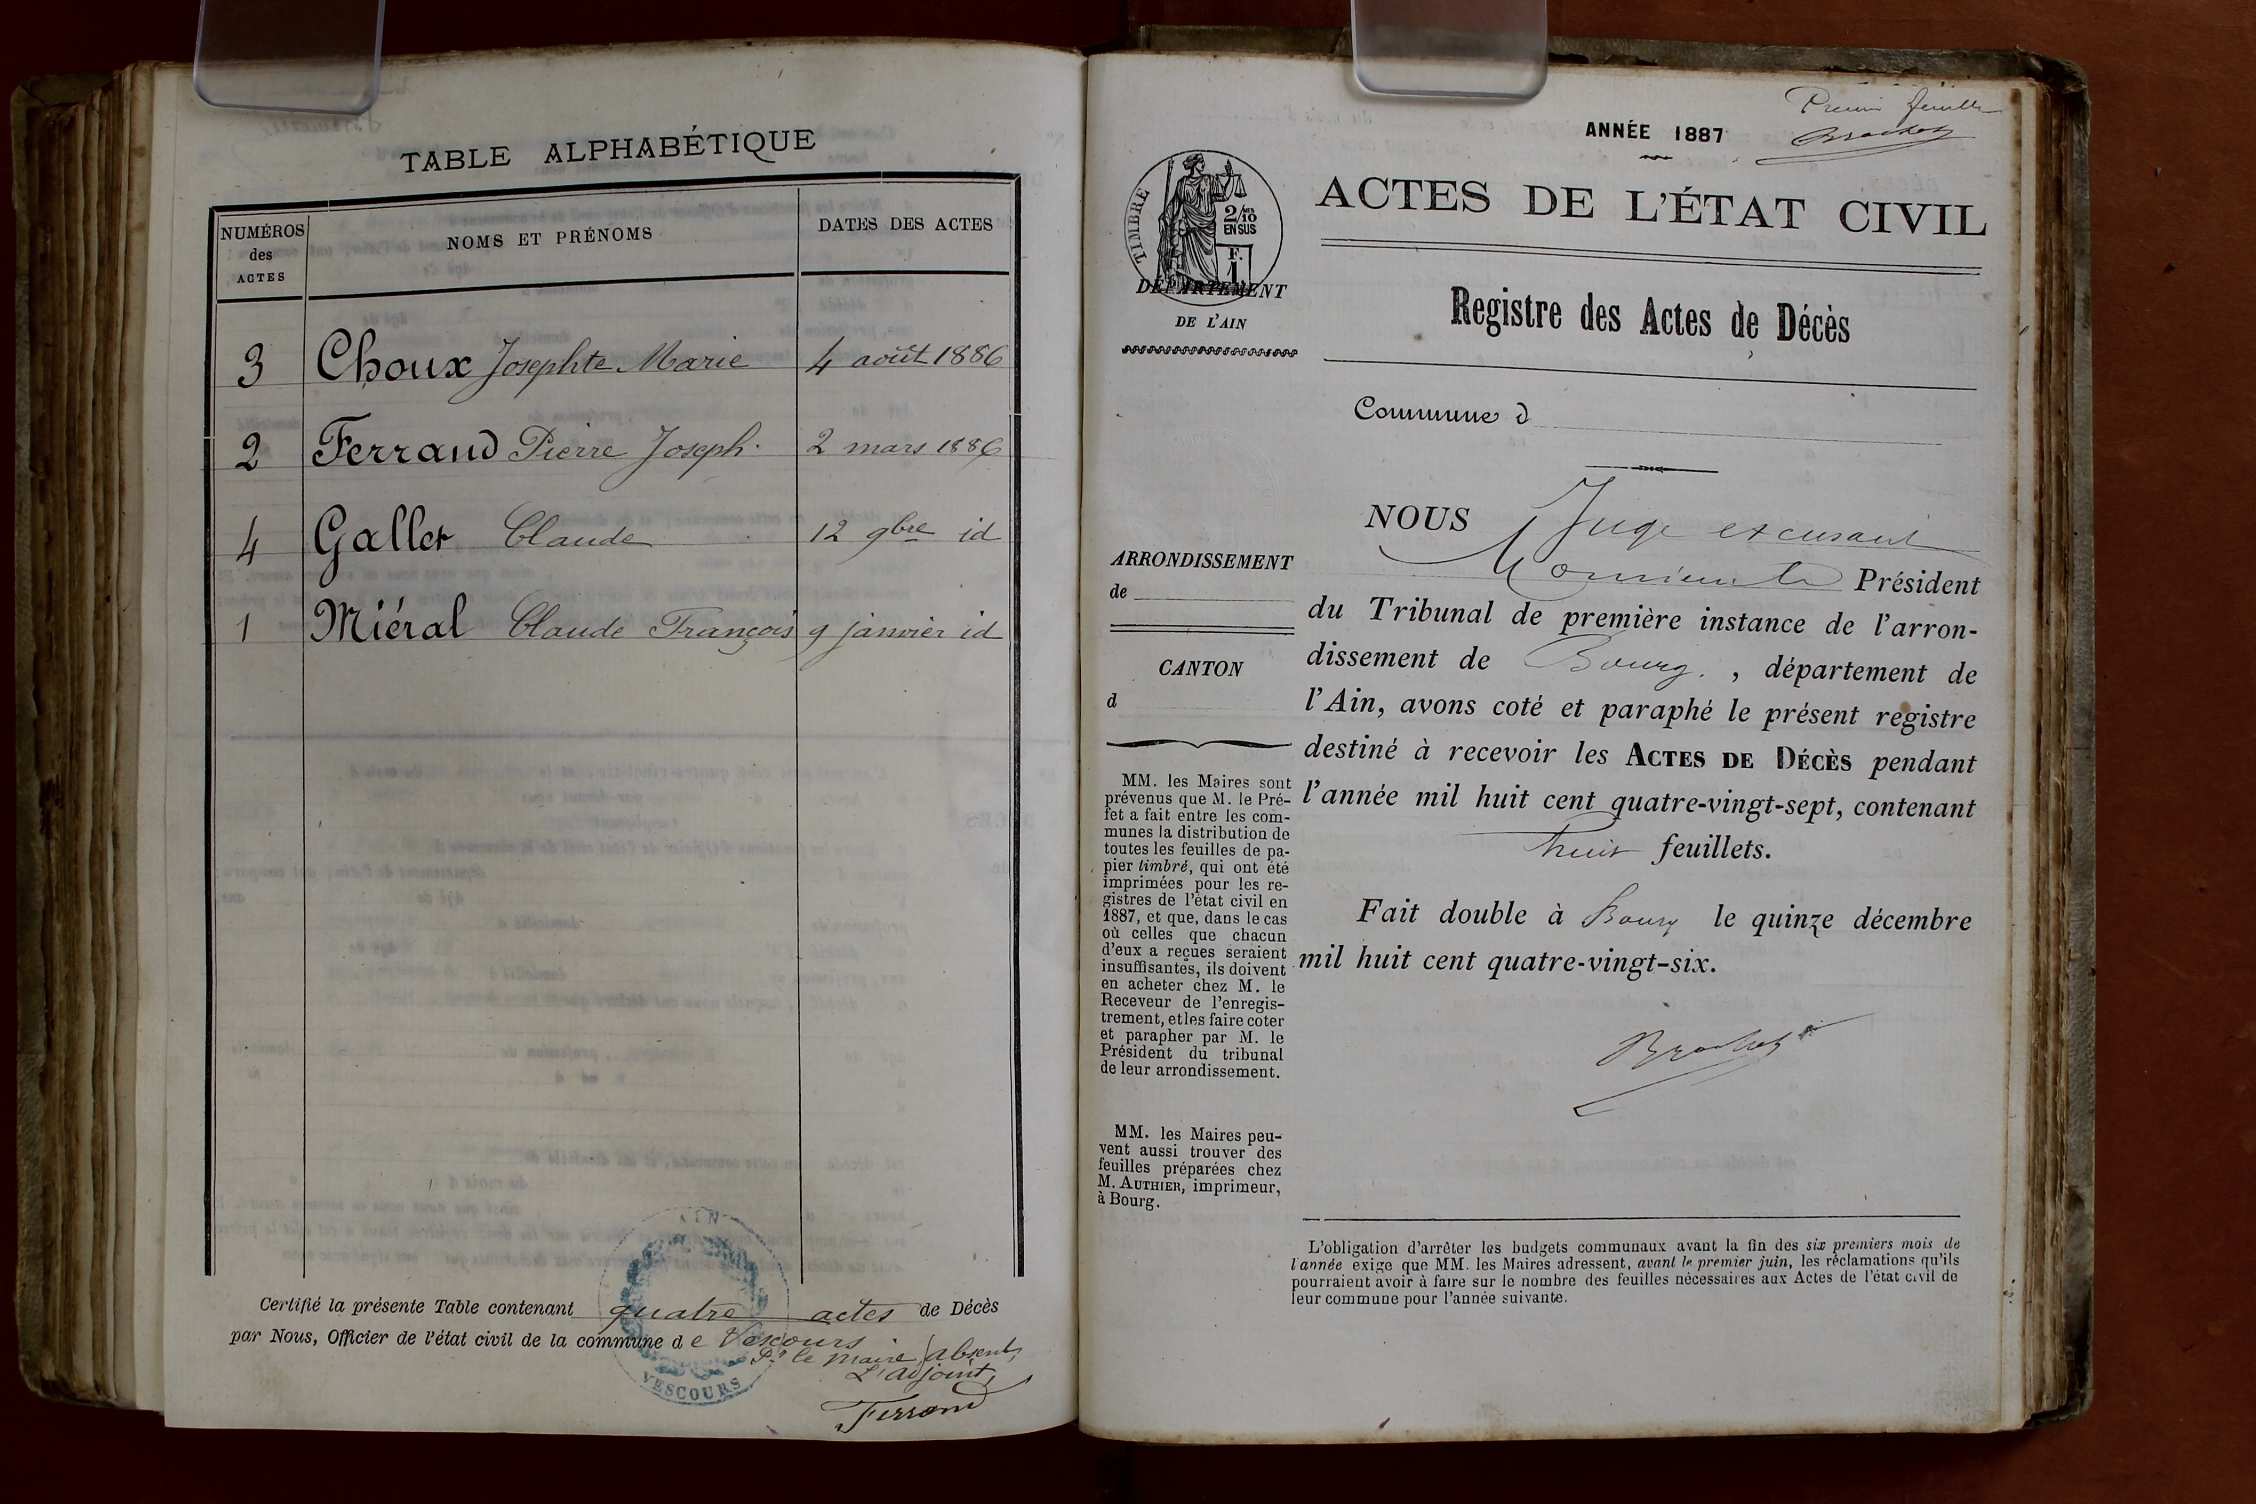 TABLE ALPHABÉTIQUE
NUMÉROS
des
ACTES
NOMS ET PRÉNOMS
DATES DES ACTES
3 Choux Josephte Marie 4 août 1886
2 Ferrand Pierre Joseph 2 mars 1886
4 Gallet Claude 12 9bre id
1 Miéral Claude François 9 janvier id
Certifié la présente Table contenant quatre actes de Décès
par Nous, Officier de l'état civil de la commune de Vescours
Pr le Maire absent,
L'adjoint,
Ferrand
AIN
VESCOURS
Premier feuillet
Brochet
ANNÉE 1887
TIMBRE
2/10
EN SUS
F.
1
ACTES DE L'ÉTAT CIVIL
DÉPARTEMENT
DE L'AIN
Registre des Actes de Décès
Commune d
ARRONDISSEMENT
de
CANTON
d
MM. les Maires sont
prévenus que M. le Pré-
fet a fait entre les com-
munes la distribution de
toutes les feuilles de pa-
pier timbré, qui ont été
imprimées pour les re-
gistres de l'état civil en
1887, et que, dans le cas
où celles que chacun
d'eux a reçues seraient
insuffisantes, ils doivent
en acheter chez M. le
Receveur de l'enregis-
trement, et les faire coter
et parapher par M. le
Président du tribunal
de leur arrondissement.
MM. les Maires peu-
vent aussi trouver des
feuilles préparées chez
M. AUTHIER, imprimeur,
à Bourg.
NOUS Juge excusant
Monsieur le Président
du Tribunal de première instance de l'arron-
dissement de Bourg, département de
l'Ain, avons coté et paraphé le présent registre
destiné à recevoir les ACTES DE DÉCÈS pendant
l'année mil huit cent quatre-vingt-sept, contenant
huit feuillets.
Fait double à Bourg le quinze décembre
mil huit cent quatre-vingt-six.
Brochet
L'obligation d'arrêter les budgets communaux avant la fin des six premiers mois de
l'année exige que MM. les Maires adressent, avant le premier juin, les réclamations qu'ils
pourraient avoir à faire sur le nombre des feuilles nécessaires aux Actes de l'état civil de
leur commune pour l'année suivante.